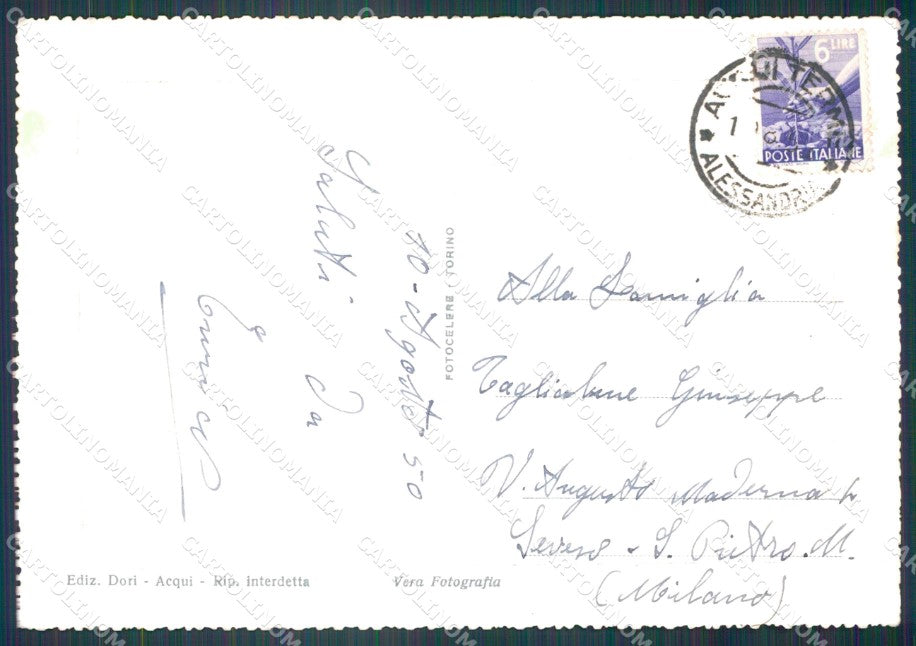 6 LIRE
POSTE ITALIANE
TERME
ALESSANDRIA
10 - Agosto 50
Saluti da
FOTOCELERE - TORINO
Alla Famiglia
Tagliabue Giuseppe
V. Augusto Maderna
Seveso - S. Pietro. M.
(Milano)
Ediz. Dori - Acqui - Rip. interdetta
Vera Fotografia
CARTOLINOMANIA